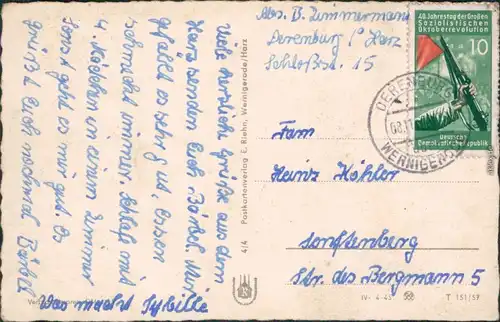 Abs. B. Zimmermann
Derenburg / Harz
Schloßstr. 15
40. Jahrestag der Großen
Sozialistischen
Oktoberrevolution
10
Deutsche
Demokratische Republik
DERENBURG
WERNIGERODE
Fam
Heinz Köhler
Sonftenberg
Str. des Bergmann 5
Viele herzliche Grüße aus dem
Harz senden Euch Bärbel. Mir
gefällt es sehr gut. Essen
schmeckt immer. Schlafe mit
4. Mädchen in einem Zimmer
Sonst geht es mir gut. Es
grüßt Euch nochmal Bärbel
Was macht Sybille
4/4 Postkartenverlag E. Riehn, Wernigerode/Harz
IV-4-45
T 151/57